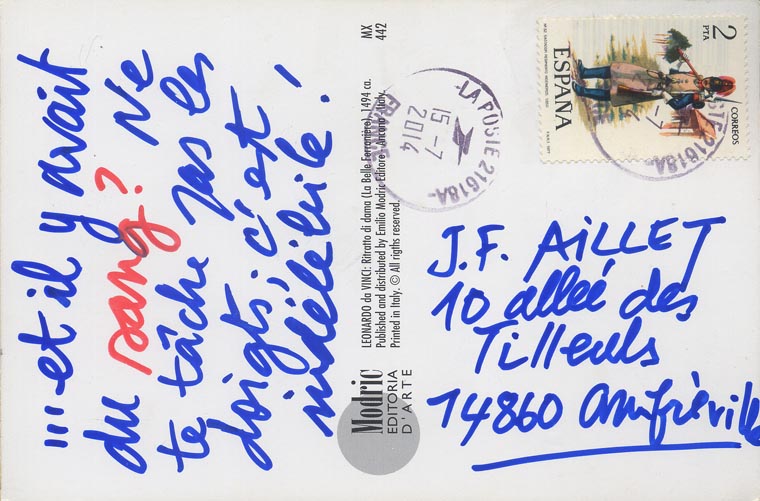 "" et il y avait
du sang ? Ne
te tâche pas les
doigts, c'est
indélébile !
MX
442
LEONARDO da VINCI: Ritratto di dama (La Belle Ferronière), 1494 ca.
Published and distributed by Emilio Modric Editore, Italy.
Printed in Italy. © All rights reserved.
Modric
EDITORIA
D'ARTE
LA POSTE 21618A
15-7
2014
FRANCE
2
PTA
ESPAÑA
CORREOS
J.F. AILLET
10 allée des
Tilleuls
14860 Amfréville